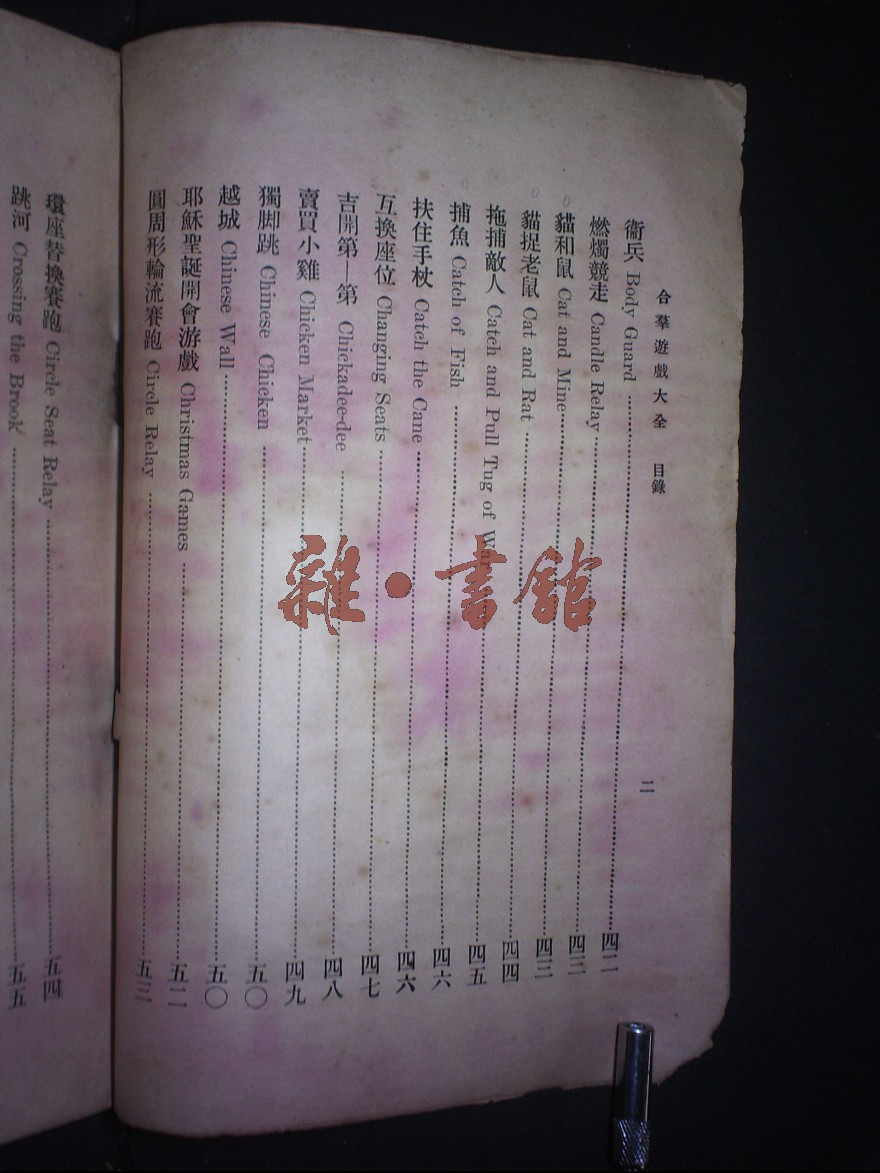 合羣遊戲大全 目錄 二
衞兵 Body Guard 四二
燃燭競走 Candle Relay 四三
貓和鼠 Cat and Mine 四三
貓捉老鼠 Cat and Rat 四四
拖捕敵人 Catch and Pull Tug of War 四五
捕魚 Catch of Fish 四六
扶住手杖 Catch the Cane 四六
互換座位 Changing Seats 四七
吉開第—第 Chickadee-dee 四八
賣買小雞 Chicken Market 四九
獨脚跳 Chinese Chicken 五〇
越城 Chinese Wall 五〇
耶穌聖誕開會游戲 Christmas Games 五二
圓周形輪流賽跑 Circle Relay 五三
環座替換賽跑 Circle Seat Relay 五四
跳河 Crossing the Brook 五五
雜·書館